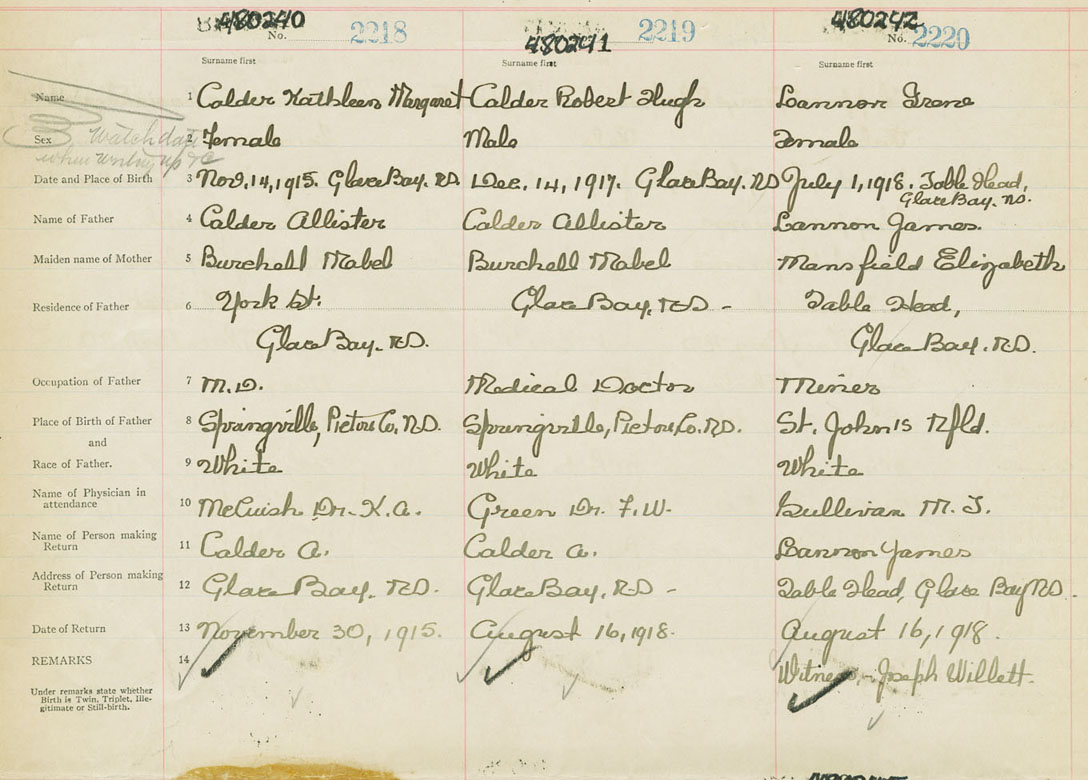 480240 480241 480242
No. 2218 2219 No. 2220
Surname first Surname first Surname first
Name 1 Calder Kathleen Margaret Calder Robert Hugh Lannon Irene
Sex 2 Female Male Female
Watch date
when writing up
Date and Place of Birth 3 Nov. 14, 1915. Glace Bay. N.S. Dec. 14, 1917. Glace Bay. N.S July 1, 1918. Table Head,
Glace Bay. N.S.
Name of Father 4 Calder Allister Calder Allister Lannon James.
Maiden name of Mother 5 Burchell Mabel Burchell Mabel Mansfield Elizabeth
Residence of Father 6 York St. Glace Bay. N.S - Table Head,
Glace Bay. N.S. Glace Bay. N.S.
Occupation of Father 7 M.D. Medical Doctor Miner
Place of Birth of Father 8 Springville, Pictou Co. N.S. Springville, Pictou Co. N.S. St. John's Nfld.
and
Race of Father. 9 White White White
Name of Physician in
attendance 10 McCuish Dr. K.A. Green Dr. F.W. Sullivan M. T.
Name of Person making
Return 11 Calder A. Calder A. Lannon James
Address of Person making
Return 12 Glace Bay. N.S. Glace Bay. N.S - Table Head, Glace Bay N.S.
Date of Return 13 November 30, 1915. August 16, 1918. August 16, 1918.
REMARKS 14 Witness, - Joseph Willett.
Under remarks state whether
Birth is Twin, Triplet, Ille-
gitimate or Still-birth.